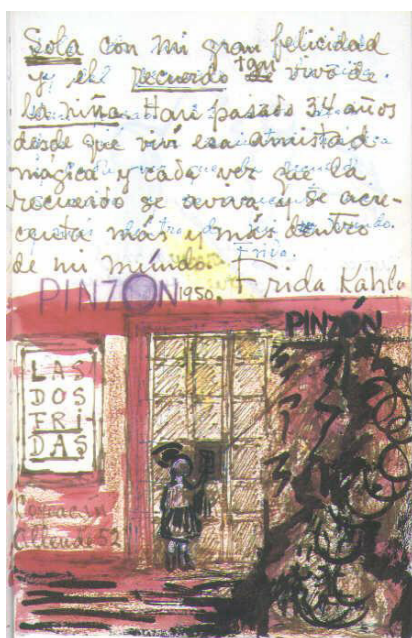 Sola con mi gran felicidad
y el recuerdo tan vivo de
la niña. Han pasado 34 años
desde que viví esa amistad
mágica y cada vez que la
recuerdo se aviva y se acre-
centa más y más dentro
de mi mundo.
PINZÓN 1950. Frida Kahlo
PINZÓN
LAS
DOS
FRI
DAS
Coyoacán
Allende 52